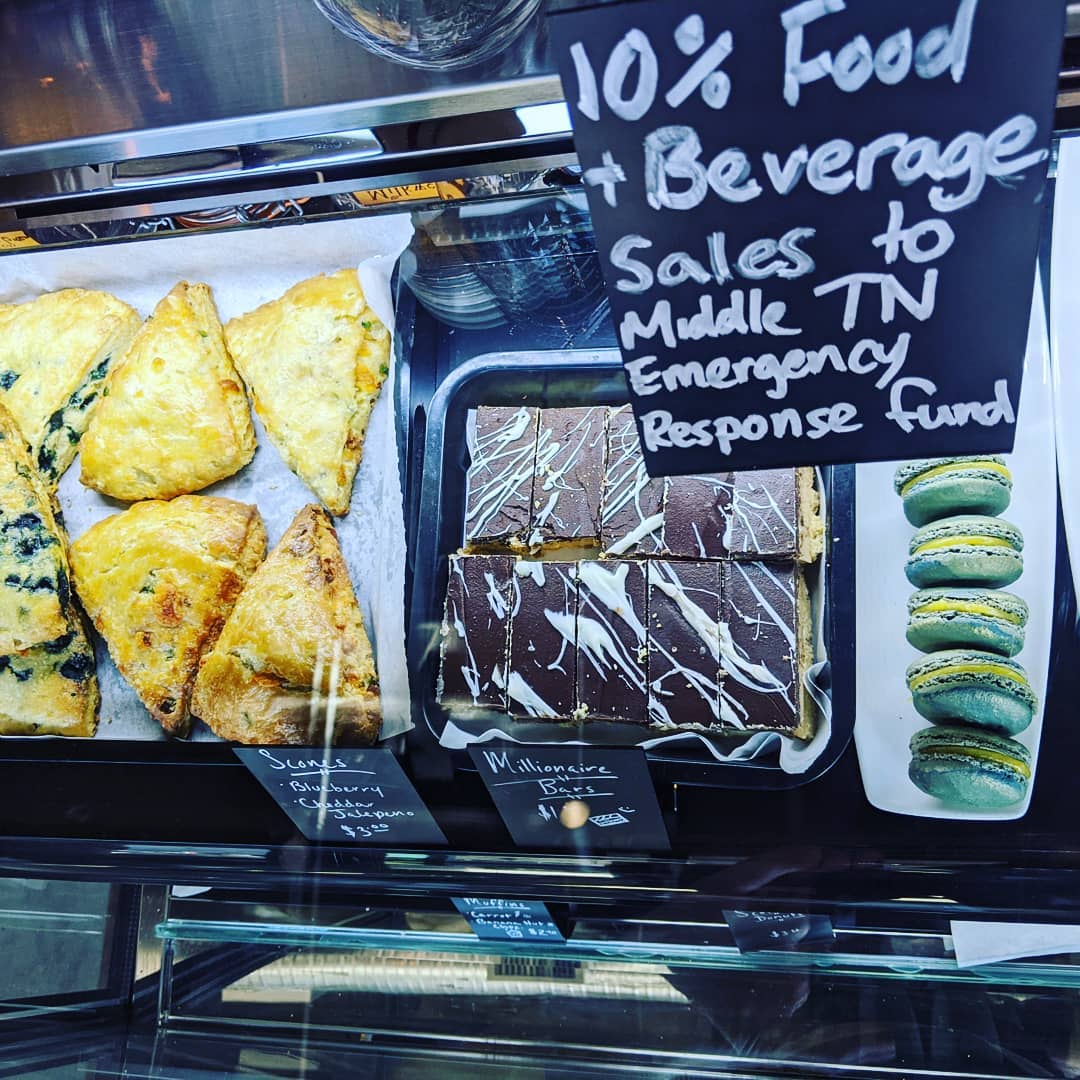 10% Food
+ Beverage
Sales to
Middle TN
Emergency
Response fund
Scones
• Blueberry
• Cheddar
Jalepeno
$3.00
Millionaire
Bars
Muffins
• Carrot
• Banana Nut